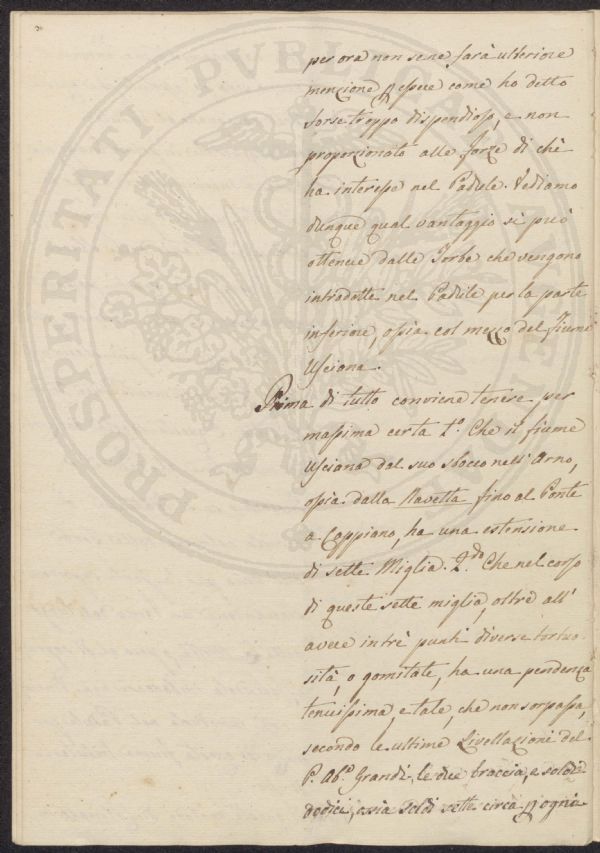 per ora non se ne farà ulteriore
menzione p essere come ho detto
forse troppo dispendioso, e non
proporzionato alle forze di chi
ha interesse nel Padule. Vediamo
dunque qual vantaggio si può
ottenere dalle Torbe che vengono
introdotte nel Padule per la parte
inferiore, ossia col mezzo del Fiume
Usciana.
Prima di tutto conviene tenere per
massima certa 1.º Che il fiume
Usciana dal suo sbocco nell'Arno,
ossia dalla Navetta fino al Ponte
a Cappiano, ha una estensione
di sette Miglia. 2.do Che nel corso
di queste sette miglia, oltre all'
avere in trè punti diverse tortuo
sità, o gomitate, ha una pendenza
tenuissima, e tale, che non sorpassa,
secondo le ultime Livellazioni del
P. Ab.e Grandi, le due braccia, e soldi
dodici, ossia soldi sette circa p ogni
PROSPERITATI PVBLICAE AVGENDAE